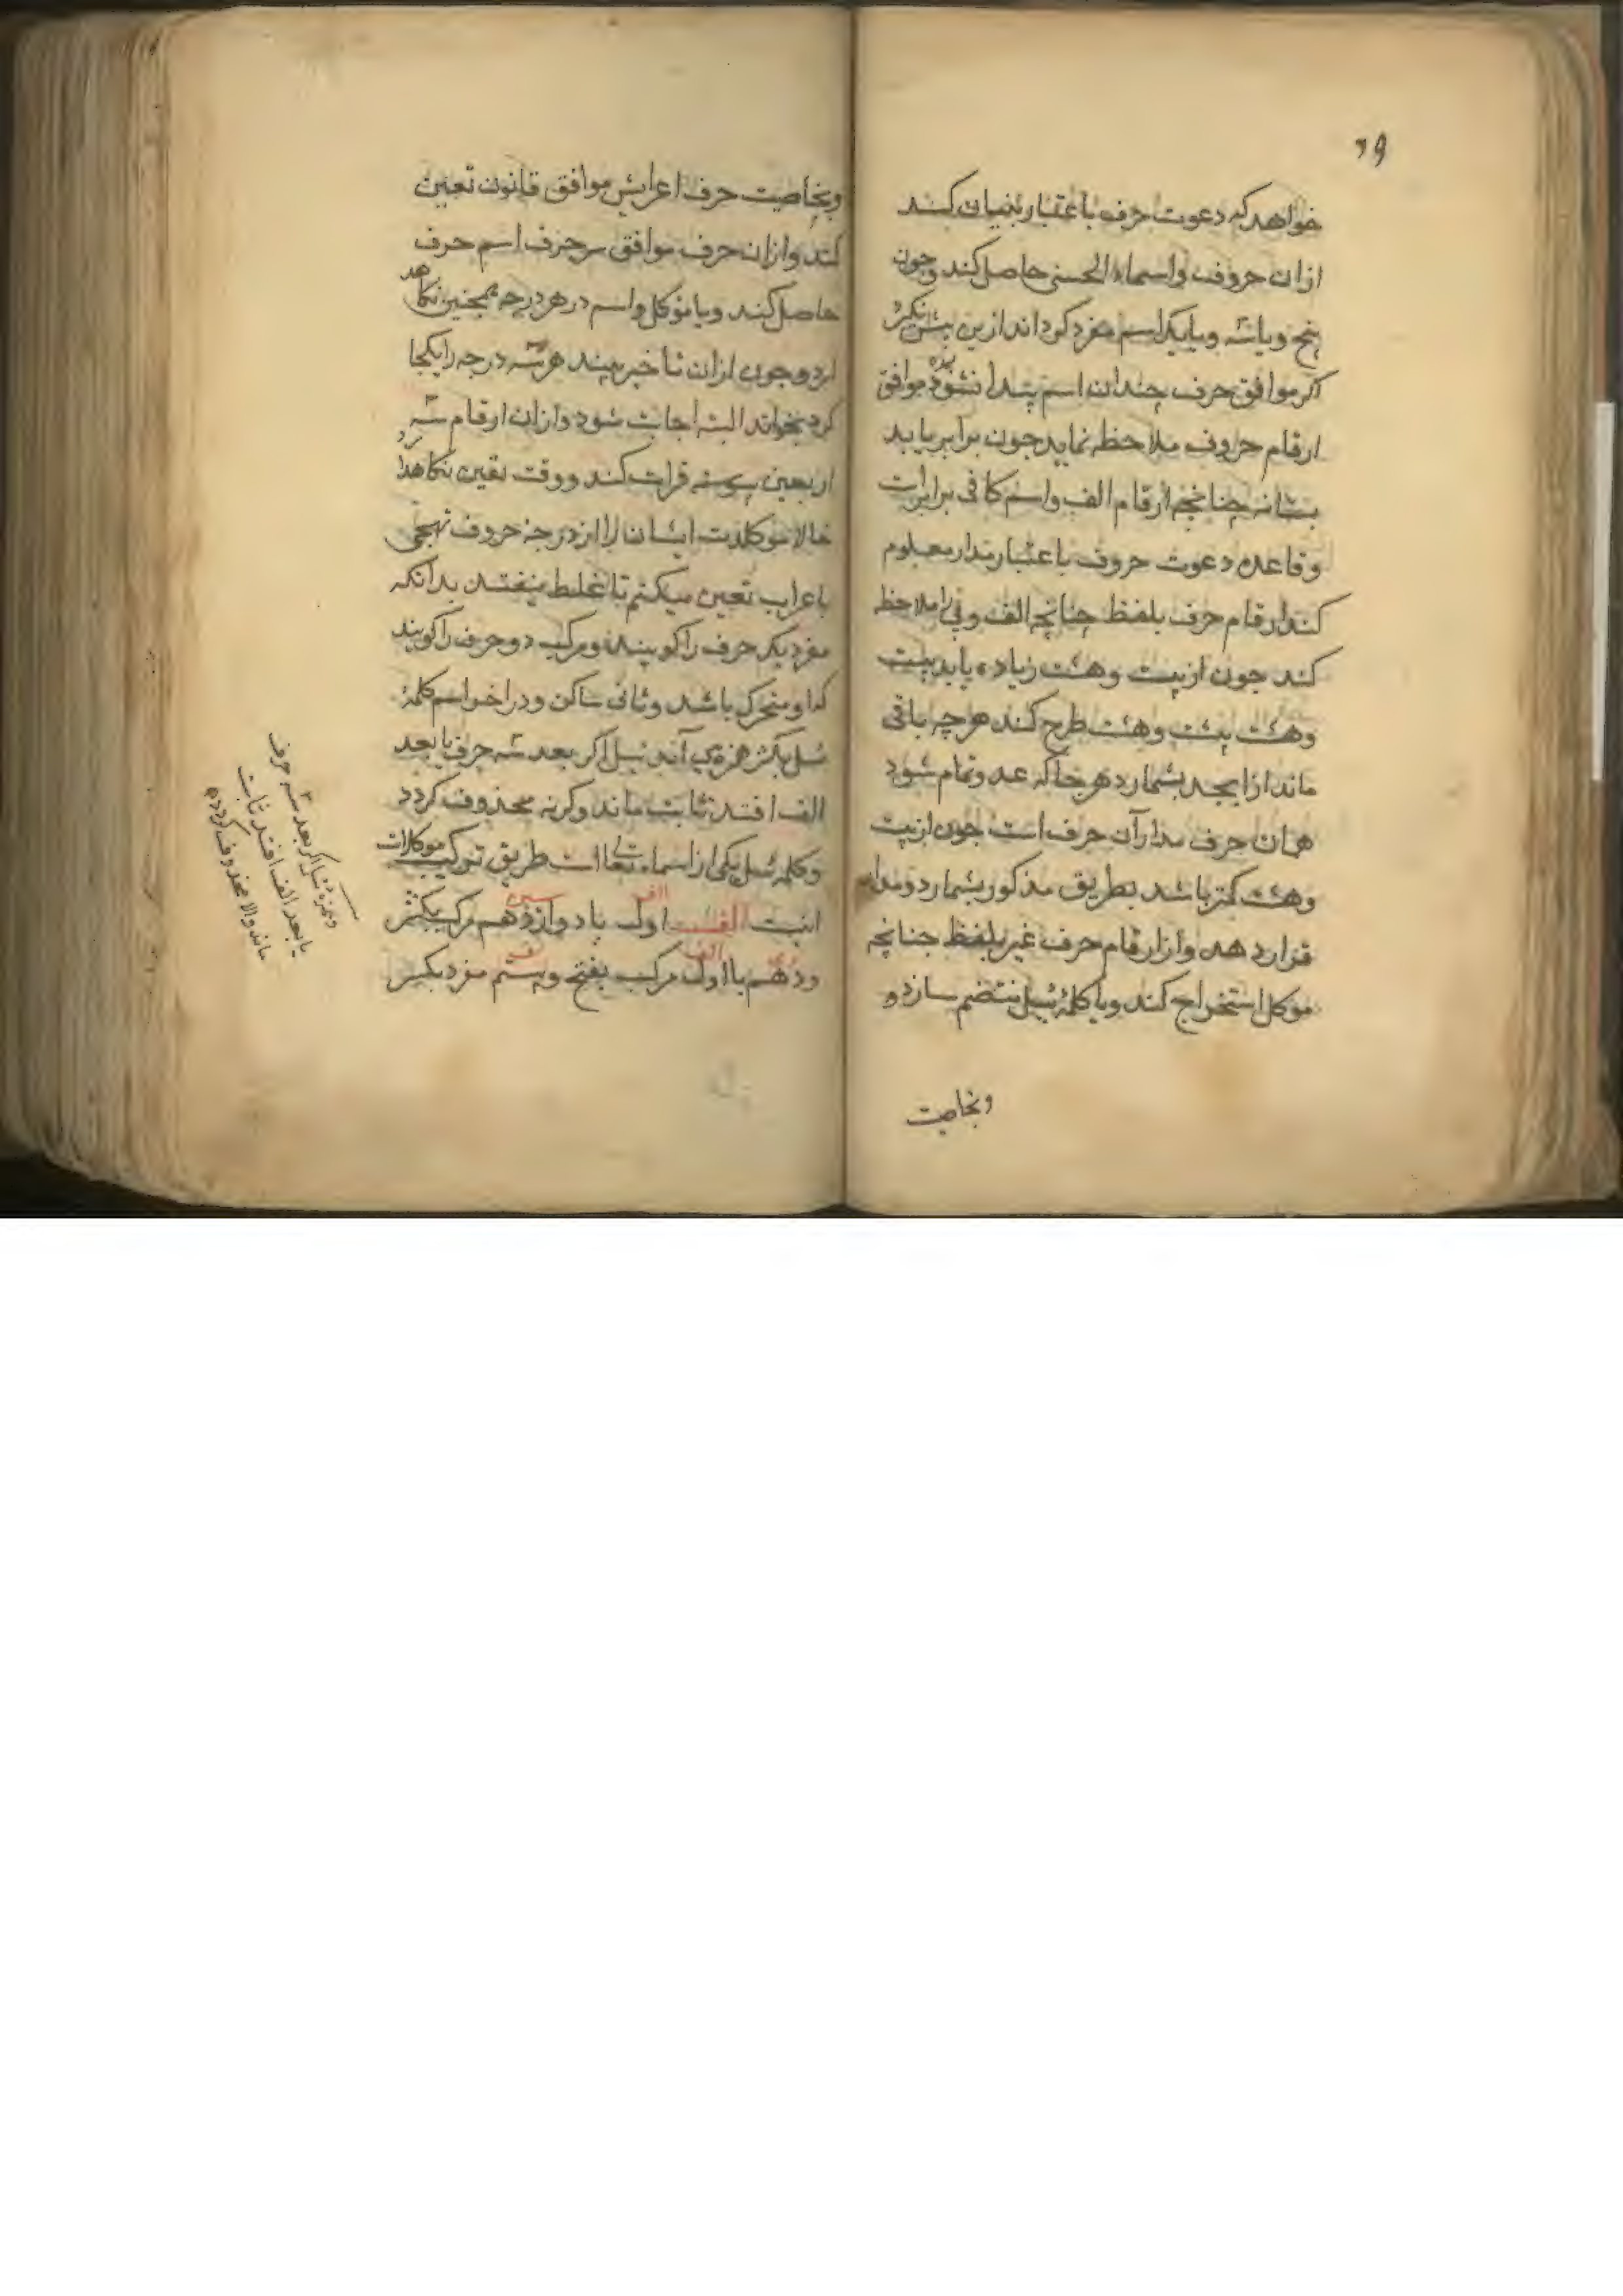 خواهد که دعوت حرف باعتبار بنیان کند
ازان حروف واسماء الحسنی حاصل کند وچون
پنج ویا سه ویا یک اسم مفرد کرداند ازین بیش نکیرد
اکر موافق حرف چندان اسم پیدا نشود موافق
ارقام حروف ملاحظه نماید چون برابر یابد
بستاند چنانچه ارقام الف واسم کافی برابرست
وقاعده دعوت حروف باعتبار مدار معلوم
کند ارقام حرف بلفظ چنانچه الف وفی را ملاحظه
کند چون از بیست وهشت زیاده یابد بیست
وهشت بیست وهشت طرح کند هر چه باقی
ماند از ابجد بشمارد هر جا که عدد تمام شود
همان حرف مدار آن حرف است چون از بیست
وهشت کمتر باشد بطریق مذکور بشمارد ومدار
قرار دهد واز ارقام حرف غیر بلفظ چنانچه
موکل استخراج کند وبا کلمهٔ ئیل منتضم سازد و
وبخاصیت
۳۹
وبخاصیت حرف اعرابش موافق قانون تعین
کند وازان حرف موافق سر حرف اسم حرف
حاصل کند وبا موکل واسم در هر درجه همچنین نکاهد
ارد وچون ازان تاخیر بیند هر سه درجه را یکجا
کرد بخواند البته اجابت شود وازان ارقام سه
اربعین پیوسته قرات کند ووقت تعین نکاهدارد
حالا موکلات ایشان را از درجه حروف تهجی
باعراب تعین میکنم تا غلط نیفتد بدانکه
مفرد یک حرف را کویند ومرکب دو حرف را کویند
که او متحرک باشد وثانی ساکن ودر اخر اسم کلمهٔ
ئیل بکسر همزه می آند ئیل اکر بعد سه حرف یا بعد
الف افتد ثابت ماند وکرنه محذوف کردد
وکلمهٔ ئیل یکی از اسماء تعالی است طریق ترکیب موکلات
اینست الف اول با دوازدهم مرکب بکسر
ودهم با اول مرکب بفتح وبیستم مفرد بکسر
وهمزه ئیل اکر بعد سه حرف
یا بعد الف افتد ثابت
ماند والا محذوف کردد